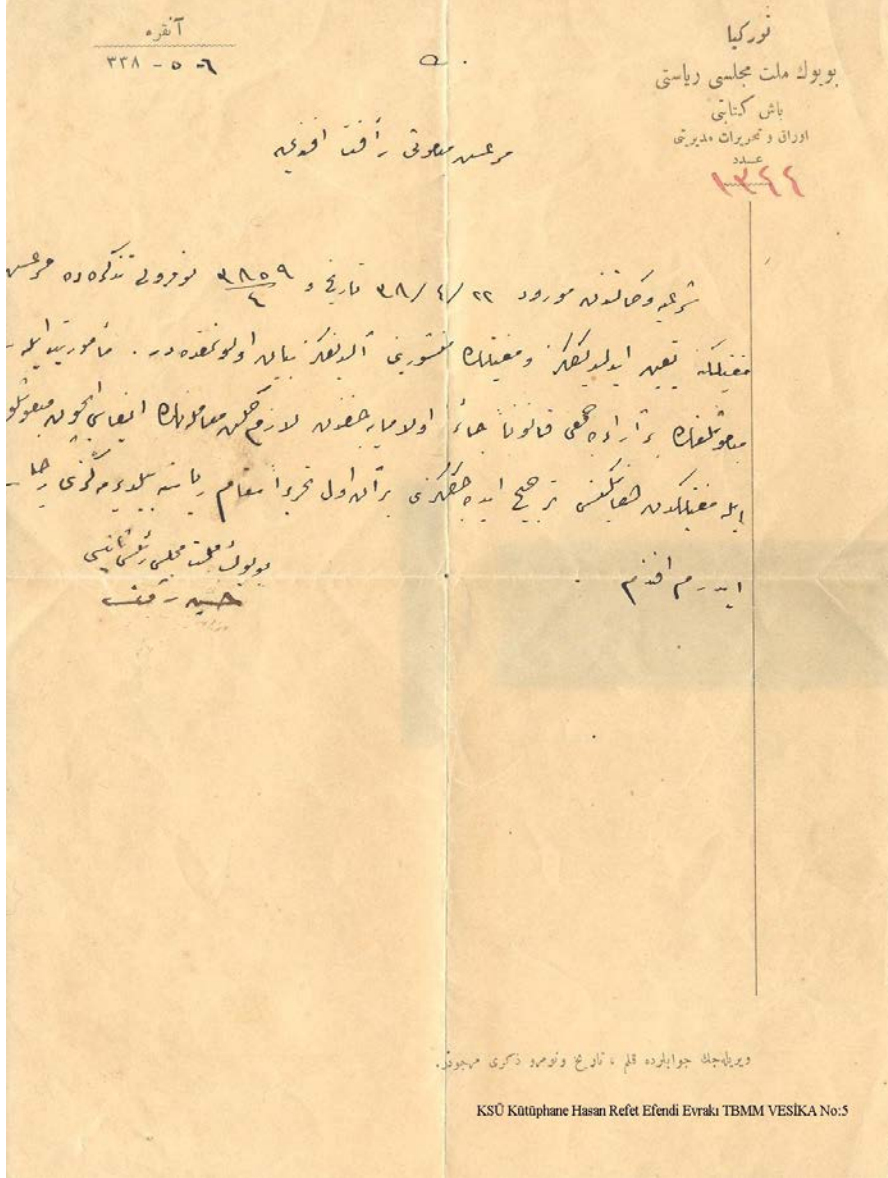 آنقره
٦- ٥ - ٣٣٨
توركيا
بويوك ملت مجلسى رياستى
باش كتابتى
اوراق و تحريرات مديريتى
عدد
١٣٤٤
مرعش مبعوثى رأفت افندى يه
شرعيه وكالتندن مورود ٢٢ /٤ /٣٨ تاريخ و ٣٨٥٩/٤ نومرولى تذكره ده مرعش
مفتيلكنه تعيين ايدلديككز و مفتيلك منشورينى آلديغكز بيان اولونمقده در . مأموريت ايله
مبعوثلغك بر آراده جمعى قانوناً جائز اولاميه جغندن لازم كلن معامله نك ايفاسى ايچون مبعوثلق
ايله مفتيلكدن هانكيسنى ترجيح ايده جككزى بر آن اول تحريراً مقام رياسته بيلديرمكزى رجا
ايدرم افندم
بويوك ملت مجلسى رئيس ثانيسى
حسين رؤف
ويريله جك جوابلرده قلم ، تاريخ ونومرو ذكرى مرجودر.
KSÜ Kütüphane Hasan Refet Efendi Evrakı TBMM VESİKA No:5